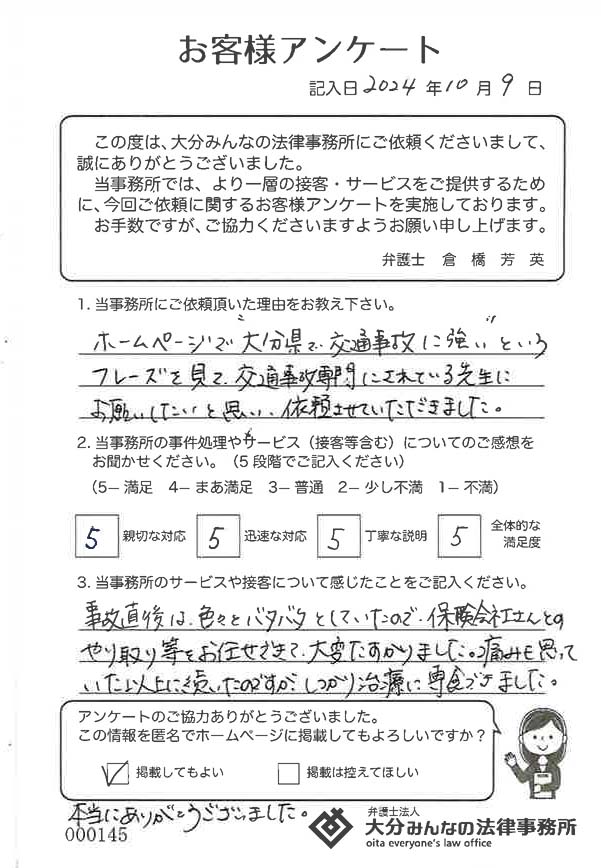 お客様アンケート
記入日 2024 年 10 月 9 日
この度は、大分みんなの法律事務所にご依頼くださいまして、
誠にありがとうございました。
当事務所では、より一層の接客・サービスをご提供するため
に、今回ご依頼に関するお客様アンケートを実施しております。
お手数ですが、ご協力くださいますようお願い申し上げます。
弁護士 倉橋芳英
1. 当事務所にご依頼頂いた理由をお教え下さい。
ホームページで"大分県で交通事故に強い"という
フレーズを見て、交通事故専門にされている先生に
お願いしたいと思い、依頼させていただきました。
2. 当事務所の事件処理やサービス（接客等含む）についてのご感想を
お聞かせください。（5段階でご記入ください）
（5－満足 4－まあ満足 3－普通 2－少し不満 1－不満）
5 親切な対応 5 迅速な対応 5 丁寧な説明 5 全体的な
満足度
3. 当事務所のサービスや接客について感じたことをご記入ください。
事故直後は、色々とバタバタとしていたので、保険会社さんとの
やり取り等をお任せできて、大変たすかりました。痛みも思って
いた以上に続いたのですが、しっかり治療に専念できました。
アンケートのご協力ありがとうございました。
この情報を匿名でホームページに掲載してもよろしいですか？
☑ 掲載してもよい □ 掲載は控えてほしい
本当にありがとうございました。
000145
弁護士法人
大分みんなの法律事務所
oita everyone's law office